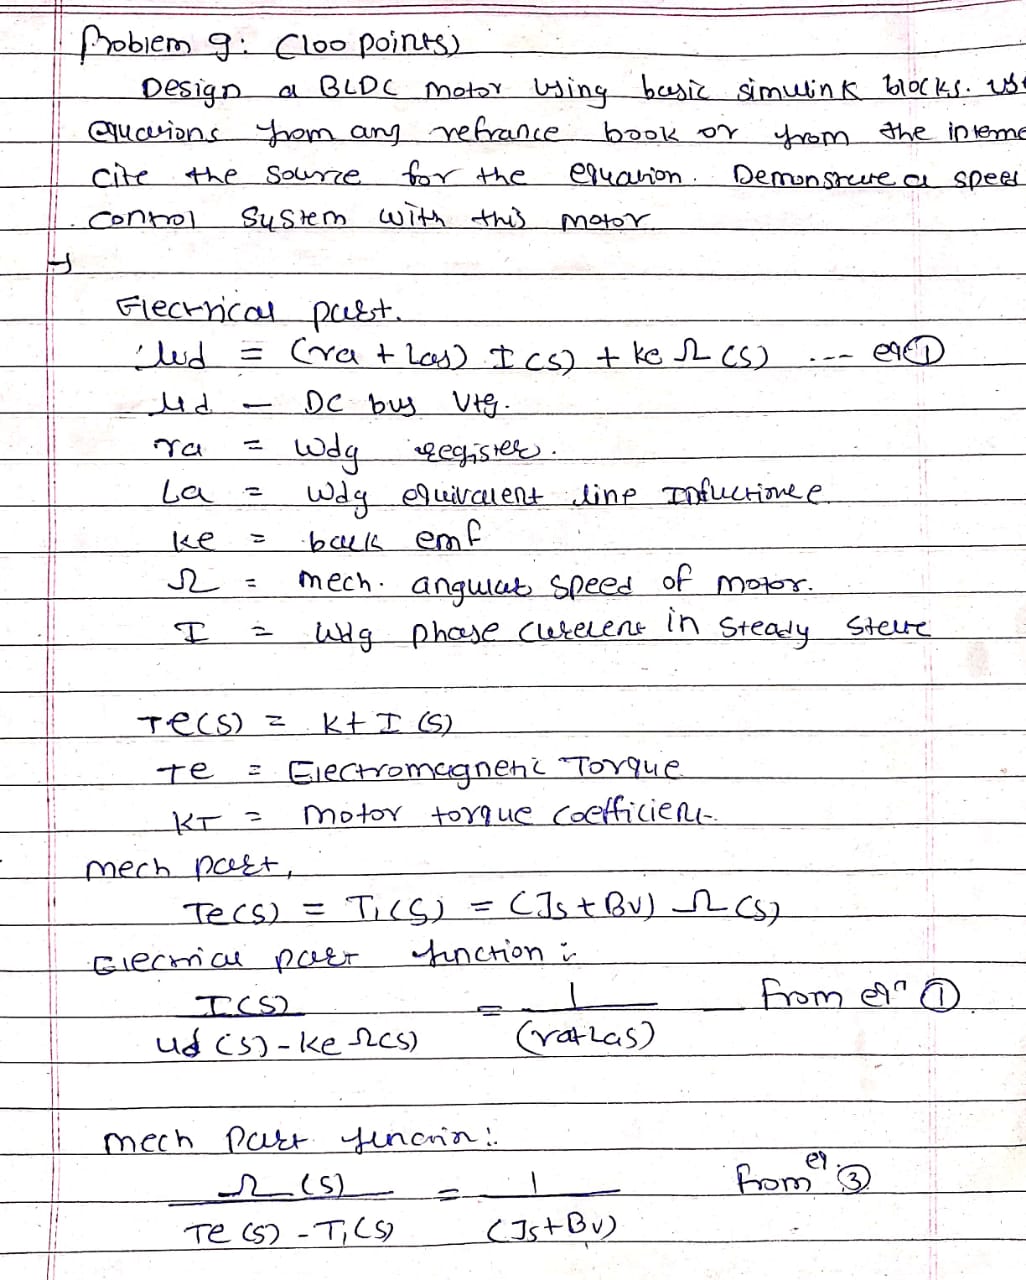 Problem 9: (100 points)
Design a BLDC motor using basic simulink blocks. use
equations from any refrance book or from the interne
cite the source for the equation. Demonstrate a speed
control system with this motor.
→
Electrical part.
Ud = (ra + Las) I(s) + ke Ω(s) --- eq①
Ud - DC bus Vtg.
ra = wdg register.
La = wdg equivalent line Inductionce
ke = back emf
Ω = mech. angular speed of motor.
I = wdg phase current in steady state
Te(s) = kt I(s)
Te = Electromagnetic Torque
KT = motor torque coefficient
mech part,
Te(s) = Tl(s) = (Js + Bv) Ω(s)
Electrical part function :
I(s) / Ud(s) - ke Ω(s) = 1 / (ra+Las) From eqn ①
mech part function :
Ω(s) / Te(s) - Tl(s) = 1 / (Js+Bv) From eq. ③